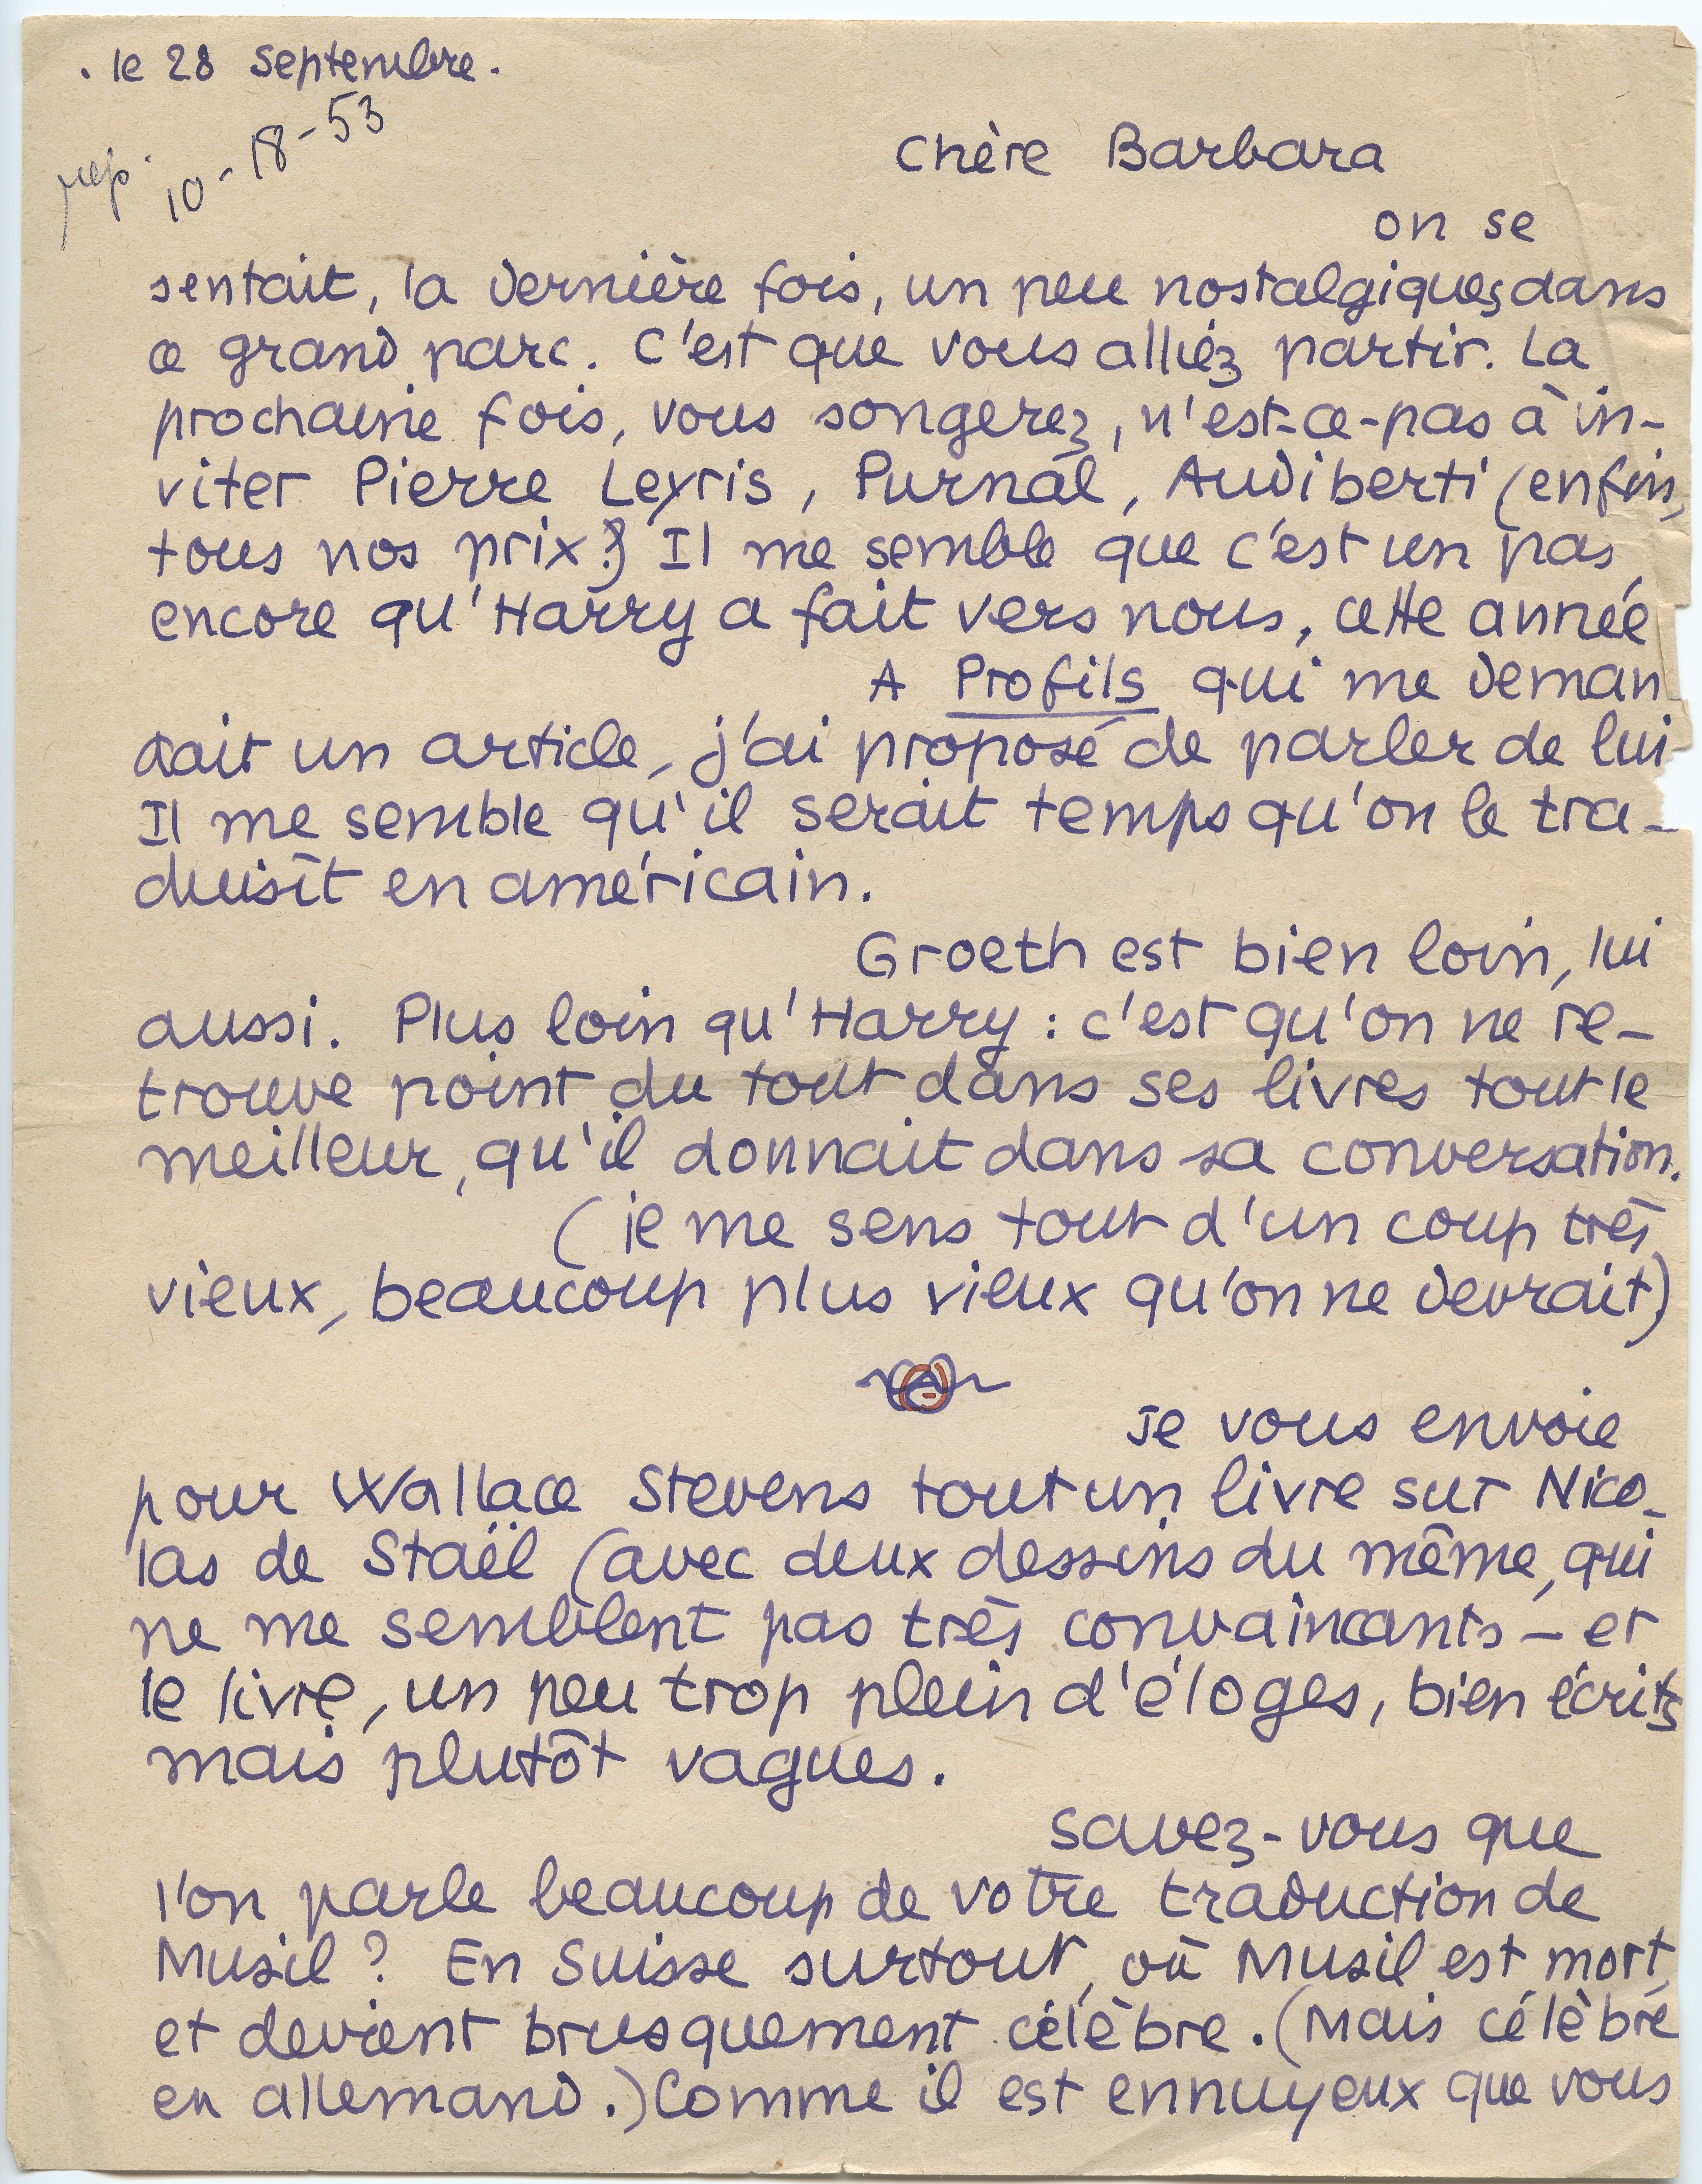 . le 28 septembre.
rep. 10-18-53
Chère Barbara
on se
sentait, la dernière fois, un peu nostalgiques, dans
ce grand parc. C'est que vous alliez partir. La
prochaine fois, vous songerez, n'est-ce-pas à in-
viter Pierre Leyris, Purnal, Audiberti (enfin,
tous nos prix?) Il me semble que c'est un pas
encore qu'Harry a fait vers nous, cette année
A Profils qui me deman
dait un article, j'ai proposé de parler de lui
Il me semble qu'il serait temps qu'on le tra-
duisît en américain.
Groeth est bien loin, lui
aussi. Plus loin qu'Harry : c'est qu'on ne re-
trouve point du tout dans ses livres tout le
meilleur, qu'il donnait dans sa conversation.
(je me sens tout d'un coup très
vieux, beaucoup plus vieux qu'on ne devrait)
Je vous envoie
pour Wallace Stevens tout un livre sur Nico-
las de Staël (avec deux dessins du même, qui
ne me semblent pas très convaincants - et
le livre, un peu trop plein d'éloges, bien écrits
mais plutôt vagues.
Savez-vous que
l'on parle beaucoup de votre traduction de
Musil ? En Suisse surtout, où Musil est mort,
et devient brusquement célèbre. (Mais célèbre
en allemand.) Comme il est ennuyeux que vous